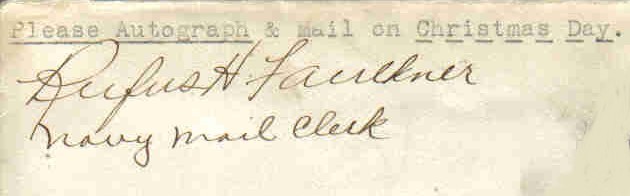 Please Autograph & mail on Christmas Day.
Rufus H Faulkner
Navy Mail Clerk